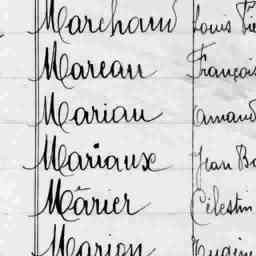 Marchand Louis
Mareau François
Mariau Amand
Mariaux Jean
Mârier Célestin
Marion Eugène